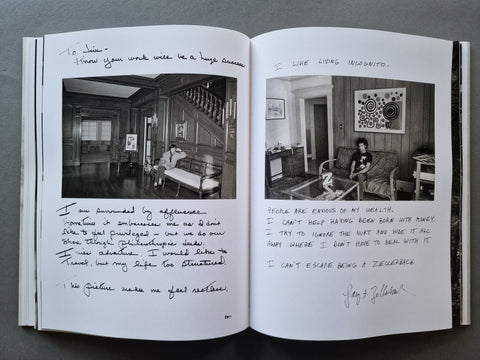 To Jim-
Know your work will be a huge success
I am surrounded by affluence.
Sometimes it embarrasses me as I don't
like to feel privileged - but we do our
share through philanthropic deeds.
I want adventure. I would like to
Travel, but my life's too structured.
This picture makes me feel restless.
I LIKE LIVING INCOGNITO.
PEOPLE ARE ENVIOUS OF MY WEALTH.
I CAN'T HELP HAVING BEEN BORN WITH MONEY.
I TRY TO IGNORE THE HURT AND HIDE IT ALL
AWAY WHERE I DON'T HAVE TO DEAL WITH IT.
I CAN'T ESCAPE BEING A ZELLERBACK.
Zellerbach